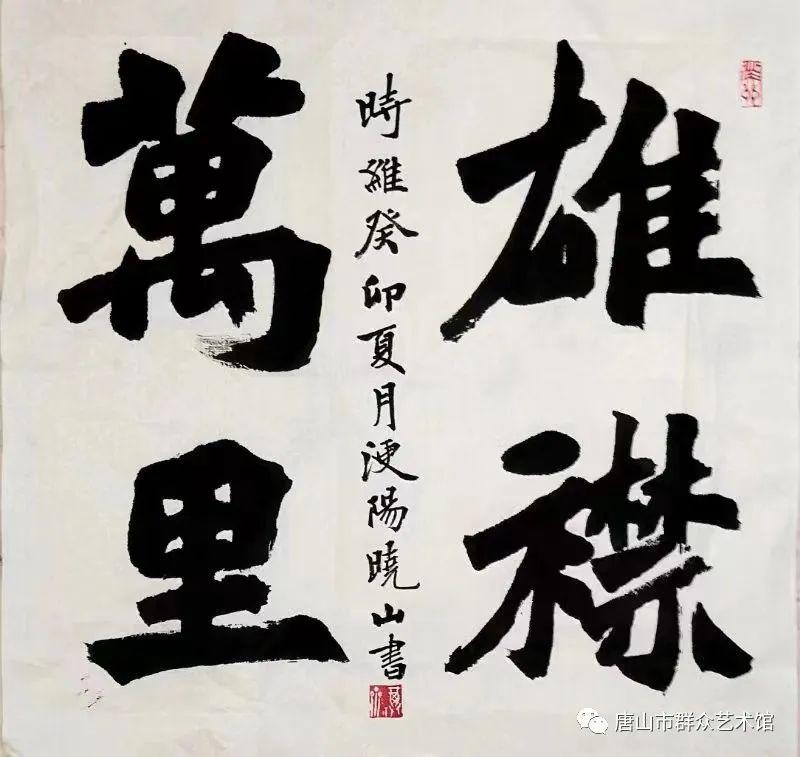 雄襟
萬里
時維癸卯夏月浭陽曉山書
唐山市群众艺术馆